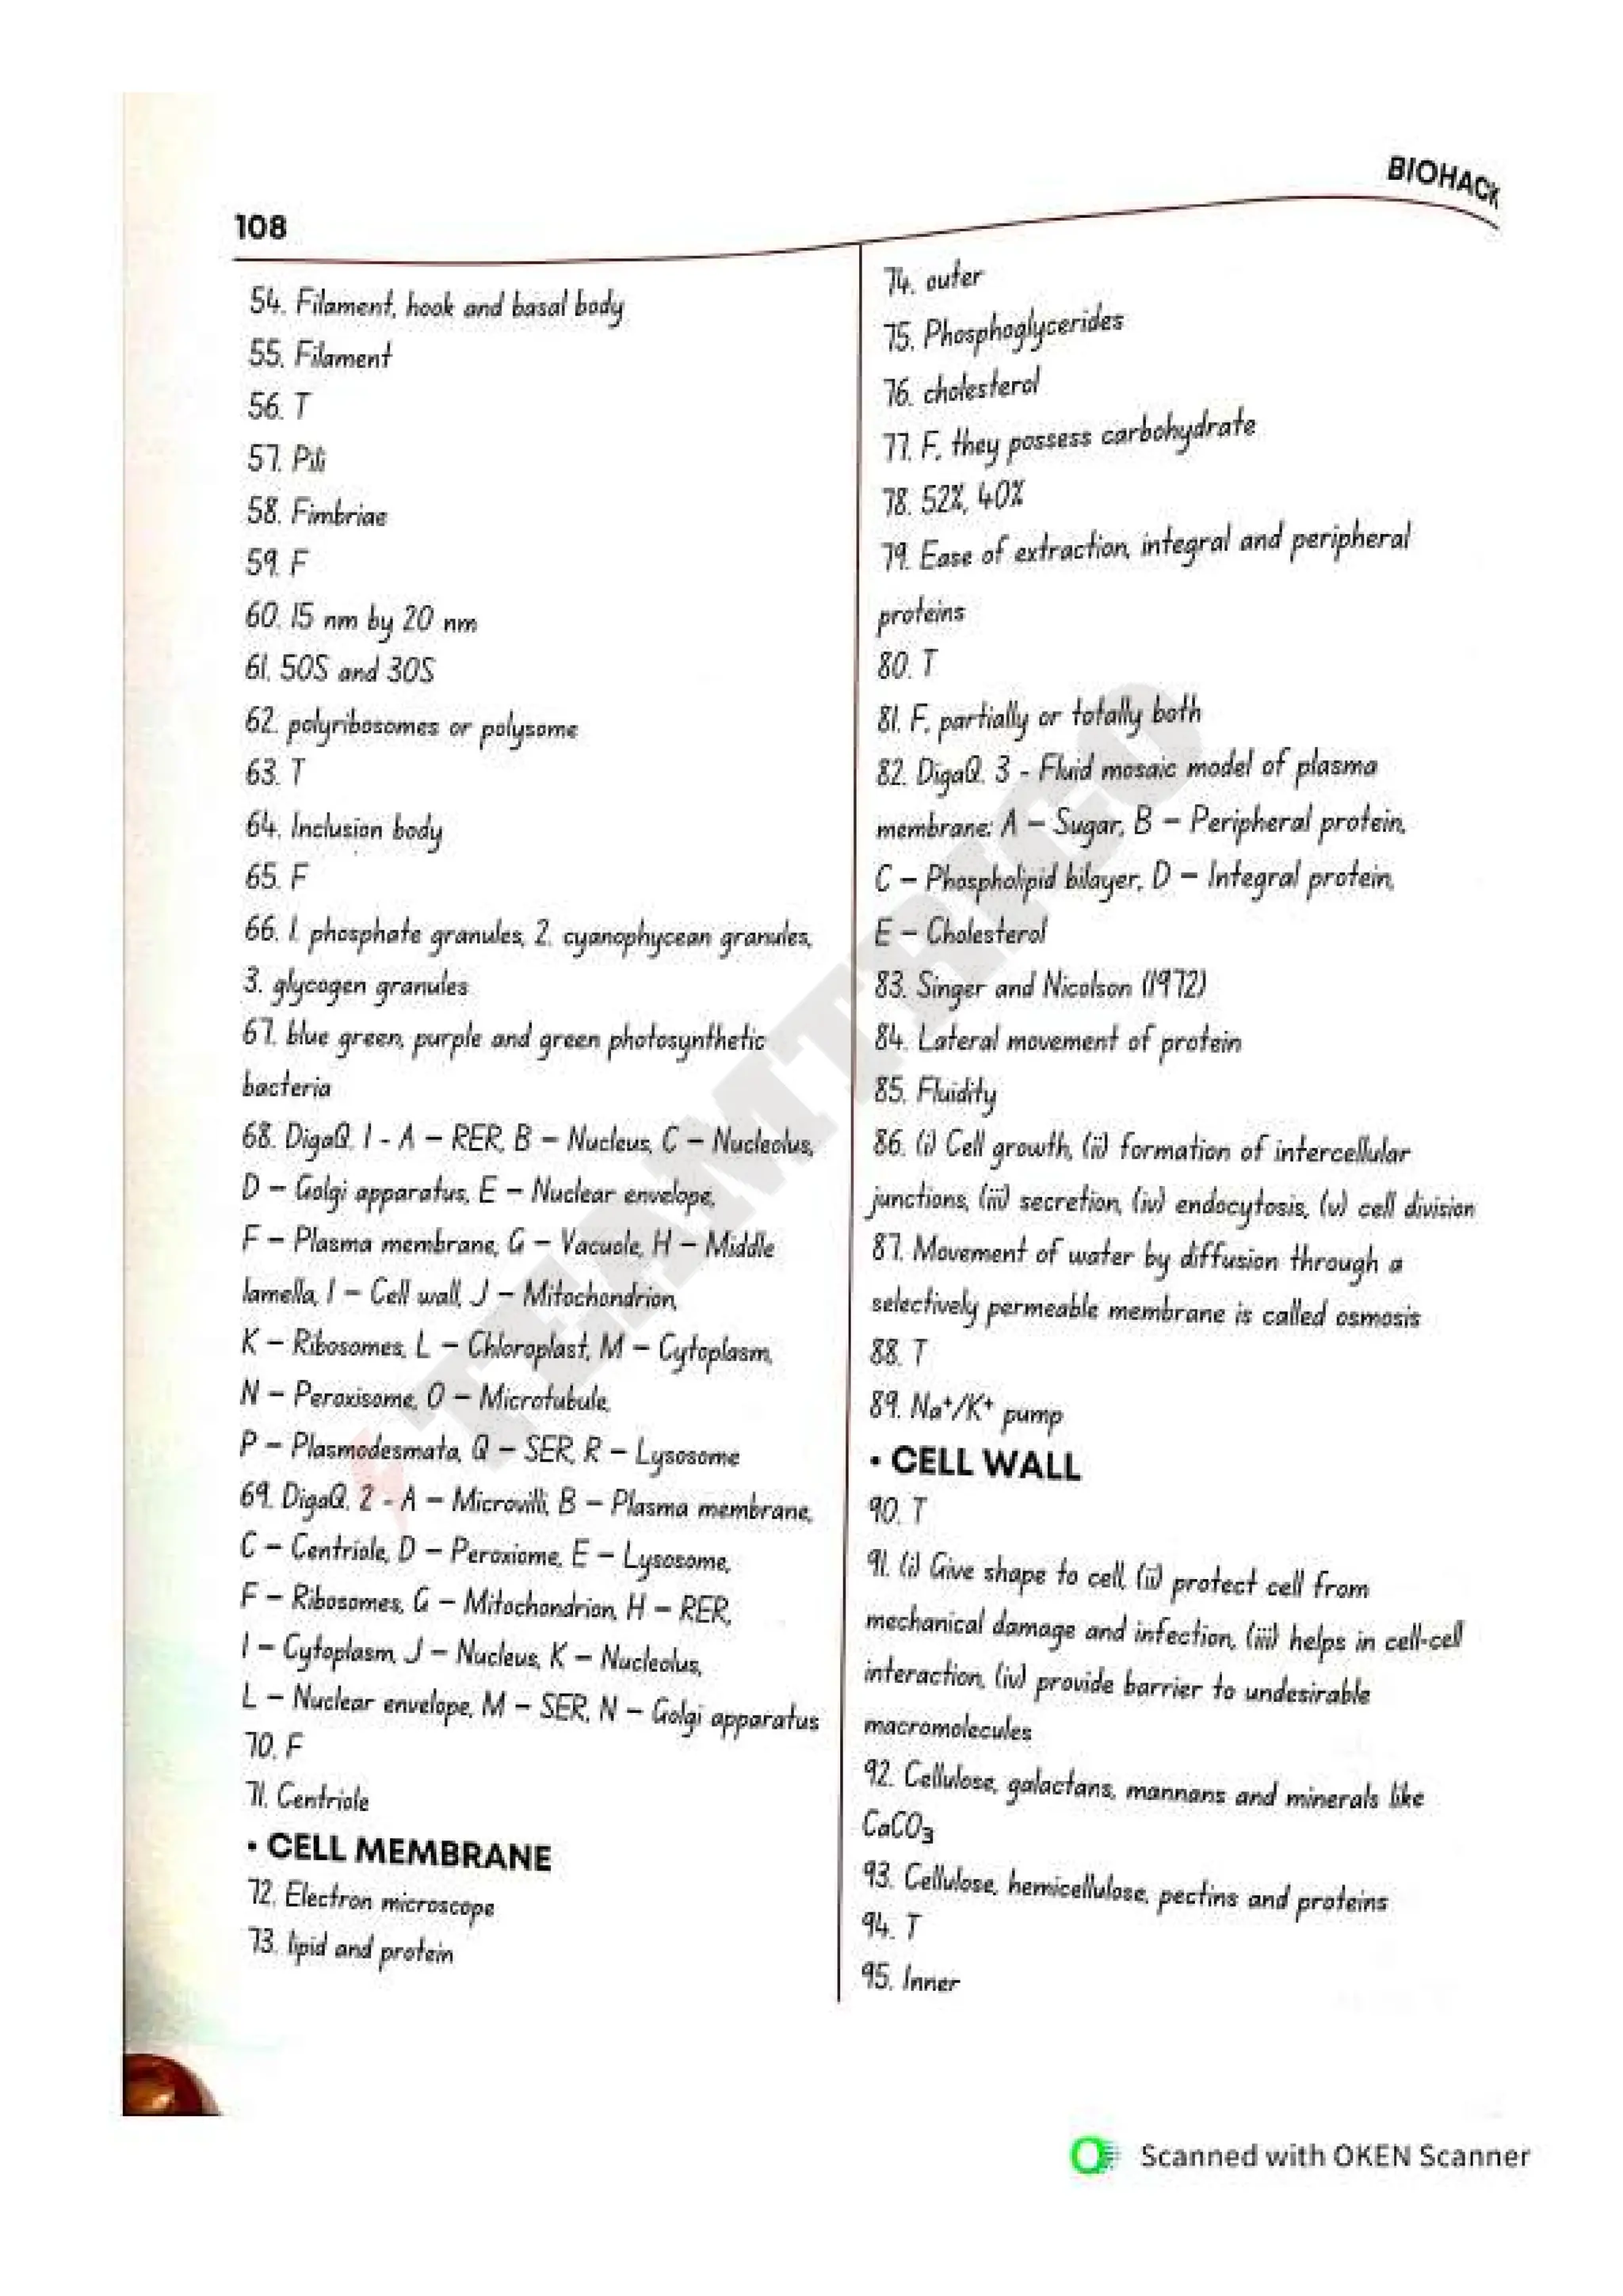 BIOHACK
108
54. Filament, hook and basal body
55. Filament
56. T
57. Pili
58. Fimbriae
59. F
60. 15 nm by 20 nm
61. 50S and 30S
62. polyribosomes or polysome
63. T
64. Inclusion body
65. F
66. 1. phosphate granules, 2. cyanophycean granules,
3. glycogen granules
67. blue green, purple and green photosynthetic
bacteria
68. DigaQ. 1 - A – RER, B – Nucleus, C – Nucleolus,
D – Golgi apparatus, E – Nuclear envelope,
F – Plasma membrane, G – Vacuole, H – Middle
lamella, I – Cell wall, J – Mitochondrion,
K – Ribosomes, L – Chloroplast, M – Cytoplasm,
N – Peroxisome, O – Microtubule,
P – Plasmodesmata, Q – SER, R – Lysosome
69. DigaQ. 2 - A – Microvilli, B – Plasma membrane,
C – Centriole, D – Peroxiome, E – Lysosome,
F – Ribosomes, G – Mitochondrion, H – RER,
I – Cytoplasm, J – Nucleus, K – Nucleolus,
L – Nuclear envelope, M – SER, N – Golgi apparatus
70. F
71. Centriole
• CELL MEMBRANE
72. Electron microscope
73. lipid and protein
74. outer
75. Phosphoglycerides
76. cholesterol
77. F, they possess carbohydrate
78. 52%, 40%
79. Ease of extraction, integral and peripheral
proteins
80. T
81. F, partially or totally both
82. DigaQ. 3 - Fluid mosaic model of plasma
membrane: A – Sugar, B – Peripheral protein,
C – Phospholipid bilayer, D – Integral protein,
E – Cholesterol
83. Singer and Nicolson (1972)
84. Lateral movement of protein
85. Fluidity
86. (i) Cell growth, (ii) formation of intercellular
junctions, (iii) secretion, (iv) endocytosis, (v) cell division
87. Movement of water by diffusion through a
selectively permeable membrane is called osmosis
88. T
89. Na⁺/K⁺ pump
• CELL WALL
90. T
91. (i) Give shape to cell, (ii) protect cell from
mechanical damage and infection, (iii) helps in cell-cell
interaction, (iv) provide barrier to undesirable
macromolecules
92. Cellulose, galactans, mannans and minerals like
CaCO₃
93. Cellulose, hemicellulose, pectins and proteins
94. T
95. Inner
TEAMTRIGO
Scanned with OKEN Scanner